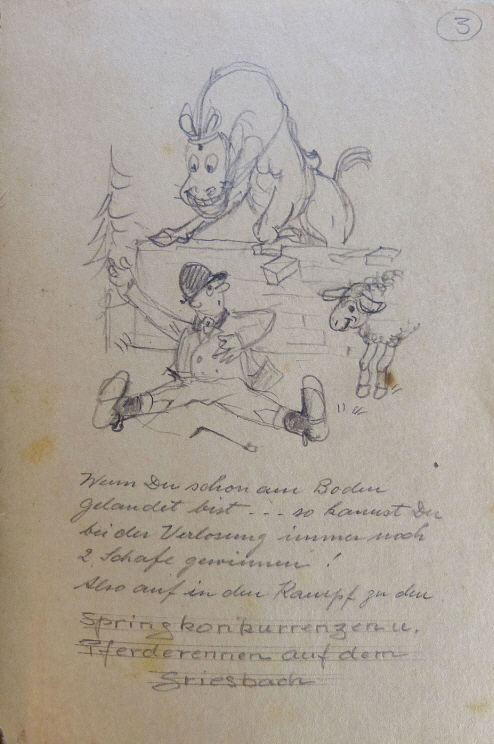 3
Wenn Du schon am Boden
gelandet bist - - - so kannst Du
bei der Verlosung immer noch
2 Schafe gewinnen !
Also auf in den Kampf zu den
Springkonkurrenzen u.
Pferderennen auf dem
Griesbach